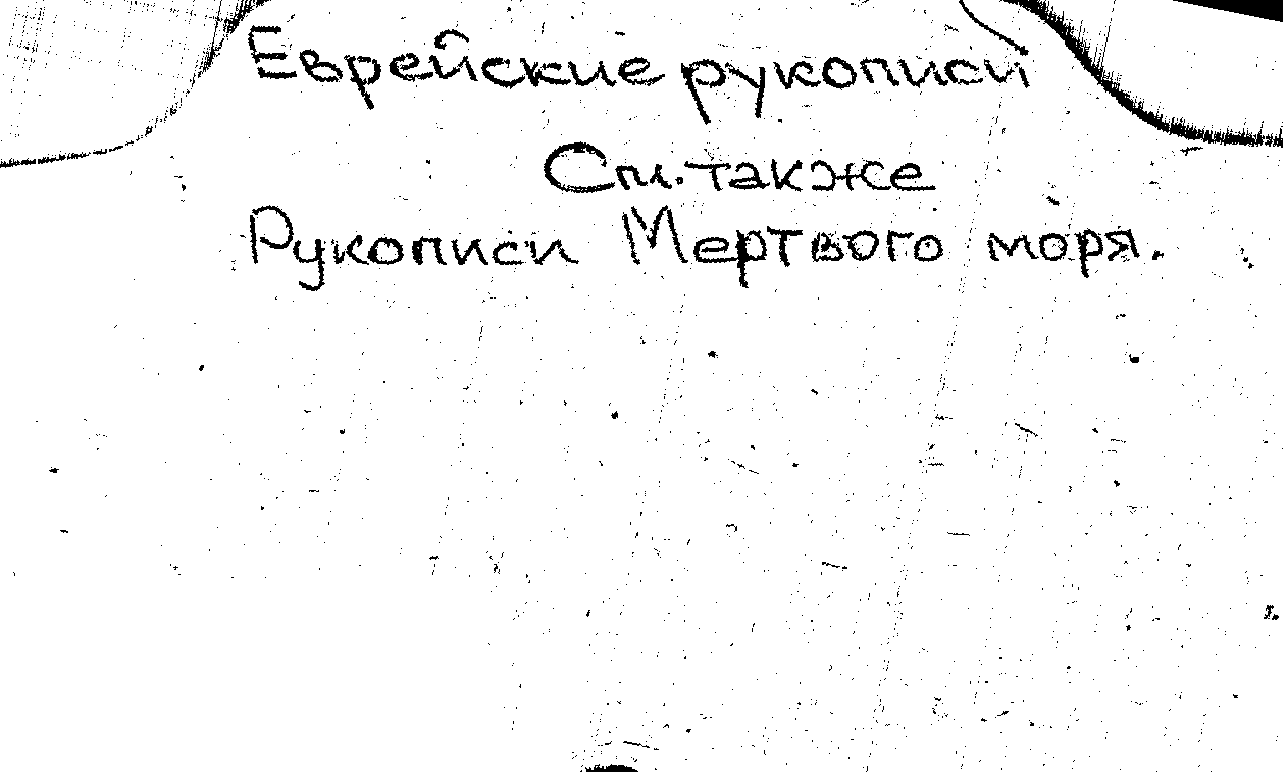 Еврейские рукописи
См. также
Рукописи Мертвого моря.